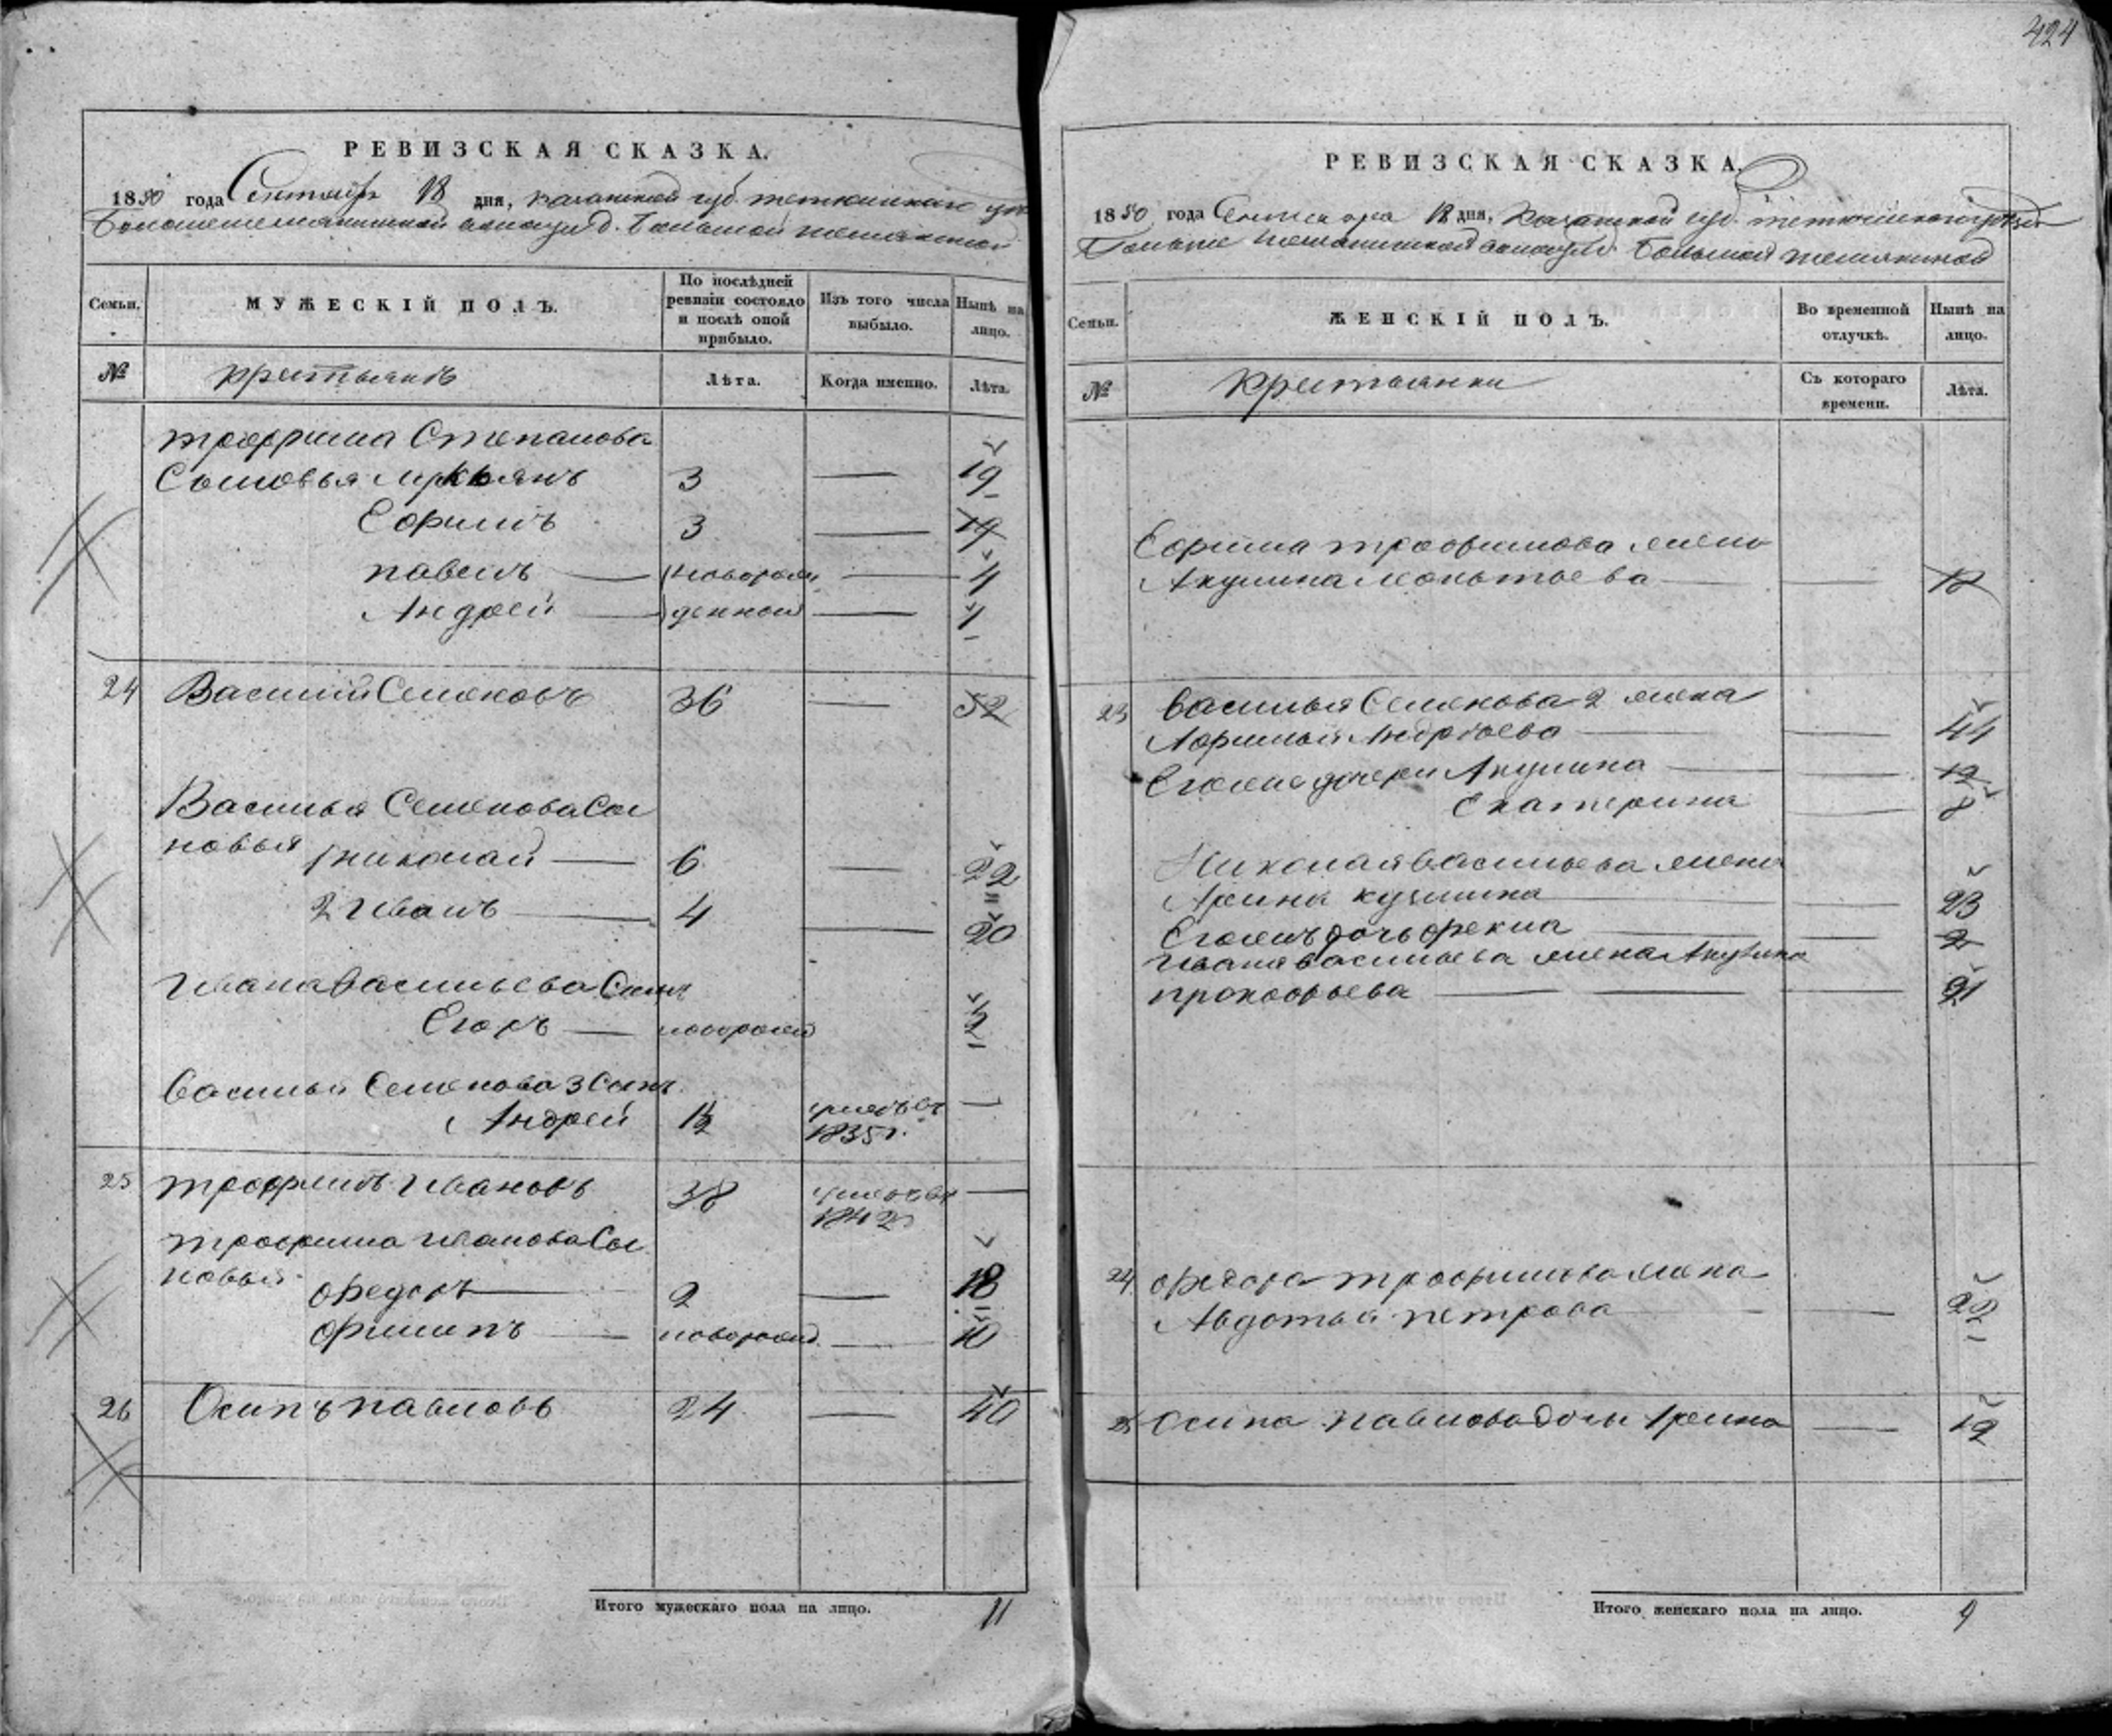 424
РЕВИЗСКАЯ СКАЗКА.
1850 года Сентябр 18 дня, казанской губ. тетюшскаго
д. Большой
Семьи.
МУЖЕСКІЙ ПОЛЪ.
По послѣдней ревизіи состояло и послѣ оной прибыло.
Изъ того числа выбыло.
Нынѣ на лицо.
№
крестьянъ
Лѣта.
Когда именно.
Лѣта.
трофима Степанова
Сыновья Лукьянъ 3 — 19
Ефимъ 3 — 19
павелъ — новорож — 4
Андрей — денной — 1
24 Василий Семеновъ 36 — 52
Василья Семенова Сы
новья 1 николай — 6 — 22
2 Иванъ — 4 — 20
Ивана васильева Сынъ
Егоръ — новорожд
василья Семенова 3 Сынъ
Андрей 1½ умеръ въ 1835 г. —
25 трофимъ Ивановъ 38 умеръ въ 1842 —
трофима Иванова Сы
новья
Федоръ — 2 — 18
Филипъ — новорожд. — 10
26 Осипъ павловъ 24 — 40
Итого мужескаго пола на лицо. 11
РЕВИЗСКАЯ СКАЗКА.
1850 года Сентября 18 дня, Казанской губ. тетюшскаго уезда
Большой
Семьи.
ЖЕНСКІЙ ПОЛЪ.
Во временной отлучкѣ.
Нынѣ на лицо.
№
крестьянки
Съ котораго времени.
Лѣта.
Ефима трофимова жена
Акулина леонтьева — — 18
23 василья Семенова 2 жена
Афимья Андреева — — 44
Егоже дочери Акулина — — 12
Екатерина — 8
Николая васильева жена
Арина кузмина — 23
Егожъ дочь фекла — — 2
Ивана васильева жена Акулина
прокофьева — — — 21
24 федора трофимова жена
Авдотья петрова — — 22
25 Осипа павлова дочь Арина — 12
Итого женскаго пола на лицо. 9